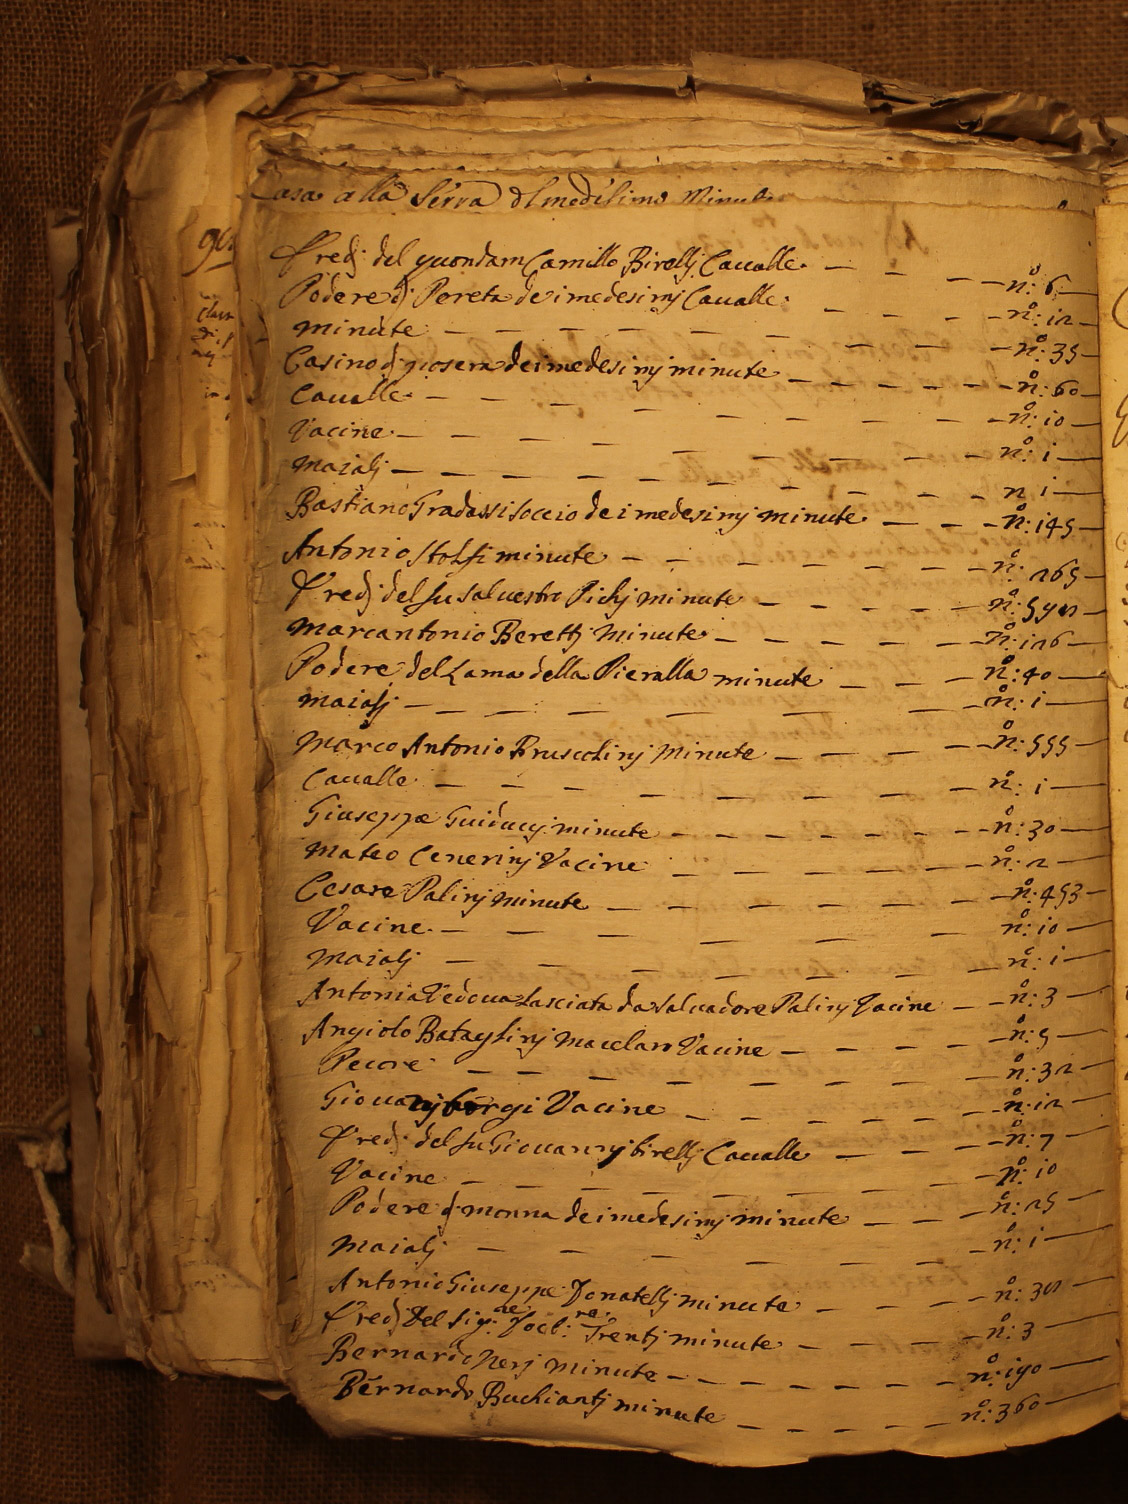 Casa alla Serra dl medesimo Minute
Eredj del quondam Camillo Birellj Caualle n.º: 6
Podere dj Pereta de i medesimj Caualle n.º: 12
minute n.º: 35
Casino dj dei medesimj minute n.º: 60
Caualle n.º: 10
Vacine n.º: 1
maialj n 1
Bastiano Gradassi Soccio de i medesimj minute n.º: 145
Antonio Stolfi minute n.º: 265
Eredj del fu Saluestro Pichj minute n.º:
Marcantonio Berettj Minute n.º: 126
Podere del Lama della Pieralla minute n.º: 40
maialj n.º: 1
Marco Antonio Bruscolinj Minute n.º: 555
Caualle n.º: 1
Giuseppe Guiducij minute n.º: 30
Mateo Cenerinj Vacine n.º: 2
Cesare Palinj minute n.º: 453
Vacine n.º: 10
maialj n.º: 1
Antonia Vedoua Lasciata da Saluadore Palinj Vacine n.º: 3
Angiolo Bataglinj macelaro Vacine n.º: 5
Pecore n.º: 32
Giouanj borgi Vacine n.º: 12
Eredj del fu Giouannj birellj Caualle n.º: 7
Vacine n.º: 10
Podere dj monna de i medesimj minute n.º: 25
Maialj n.º: 1
Antonio Giuseppe Donatellj minute n.º:
Eredj Del Sig:re Trentj minute n.º: 3
Bernardo Nerj minute n.º: 190
Bernardo Buchiantj minute n.º: 360